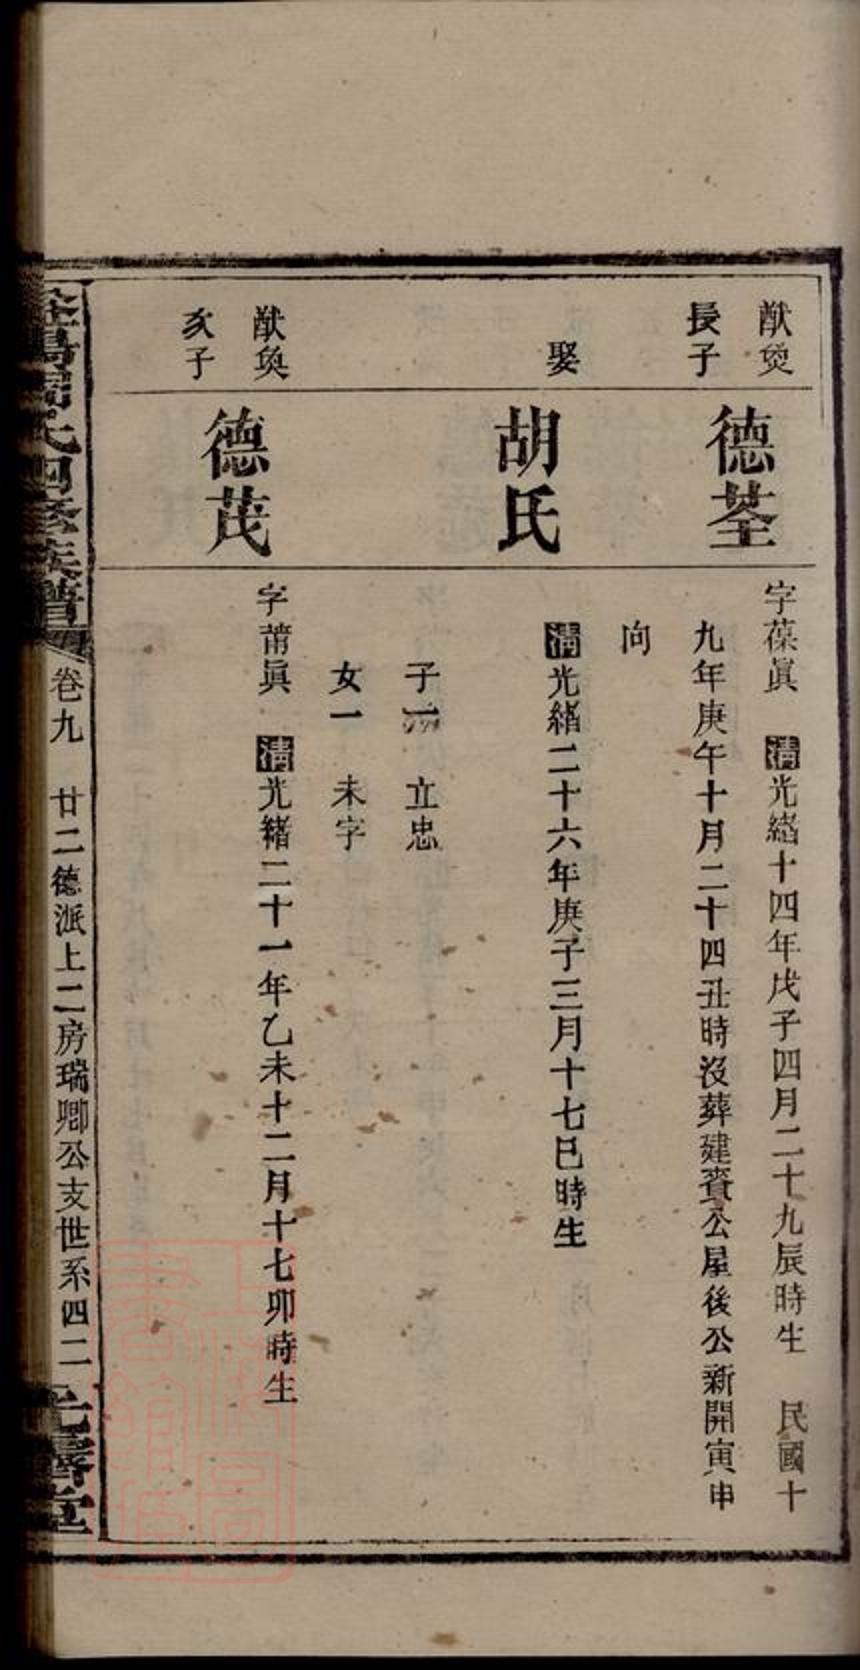 猷煲
長子
德荃
字葆眞 清光緒十四年戊子四月二十九辰時生 民國十
九年庚午十月二十四丑時沒葬建賓公屋後公新開寅申
向
娶
胡氏
清光緒二十六年庚子三月十七巳時生
子一 立忠
女一 未字
猷奐
次子
德茂
字莆眞 清光緒二十一年乙未十二月十七卯時生
周氏四修族譜 卷九 廿二德派上二房瑞卿公支世系四二
上海圖書館藏